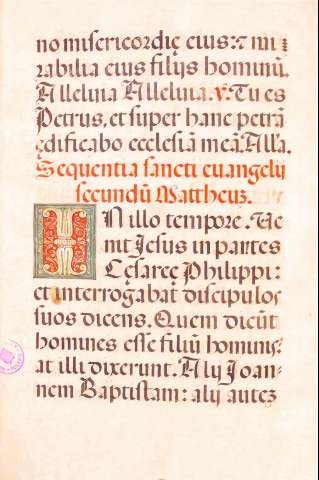 no misericordię eius: ⁊ mi
rabilia eius filijs hominū.
Alleluia Alleluia. ℣. Tu es
Petrus, et super hanc petrā
ędificabo ecclesiā meā. Alla.
Sequentia sancti euangelij
secundū Mattheuz.
In illo tempore. Ve
nit Jesus in partes
Cęsareę Philippi:
et interrogabat discipulos
suos dicens. Quem dicūt
homines esse filiū hominis?
at illi dixerunt. Alij Joan-
nem Baptistam: alij autez